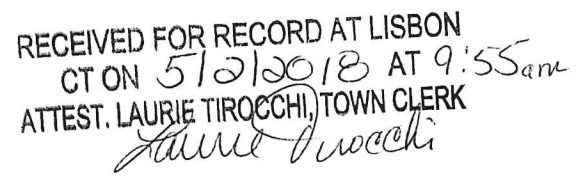 RECEIVED FOR RECORD AT LISBON
CT ON 5/2/2018 AT 9:55am
ATTEST. LAURIE TIROCCHI, TOWN CLERK
Laurie Tirocchi